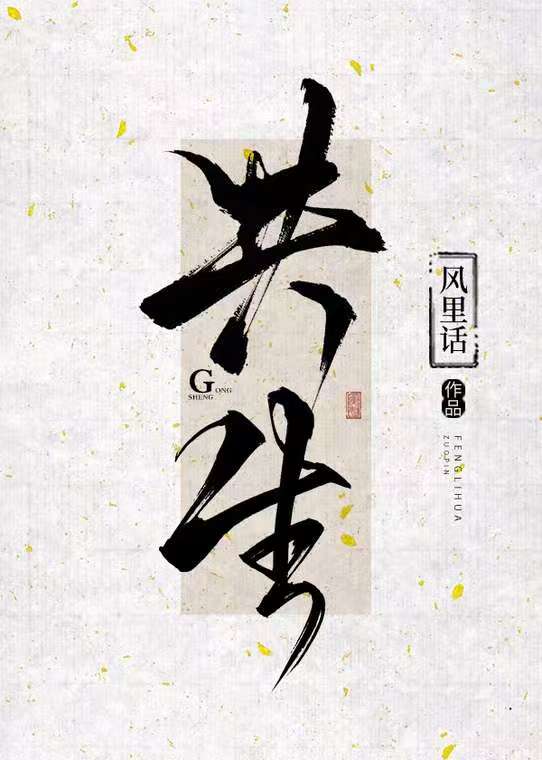 共生
GONG
SHENG
风里话
作品
FENGLIHUA
ZUOPIN